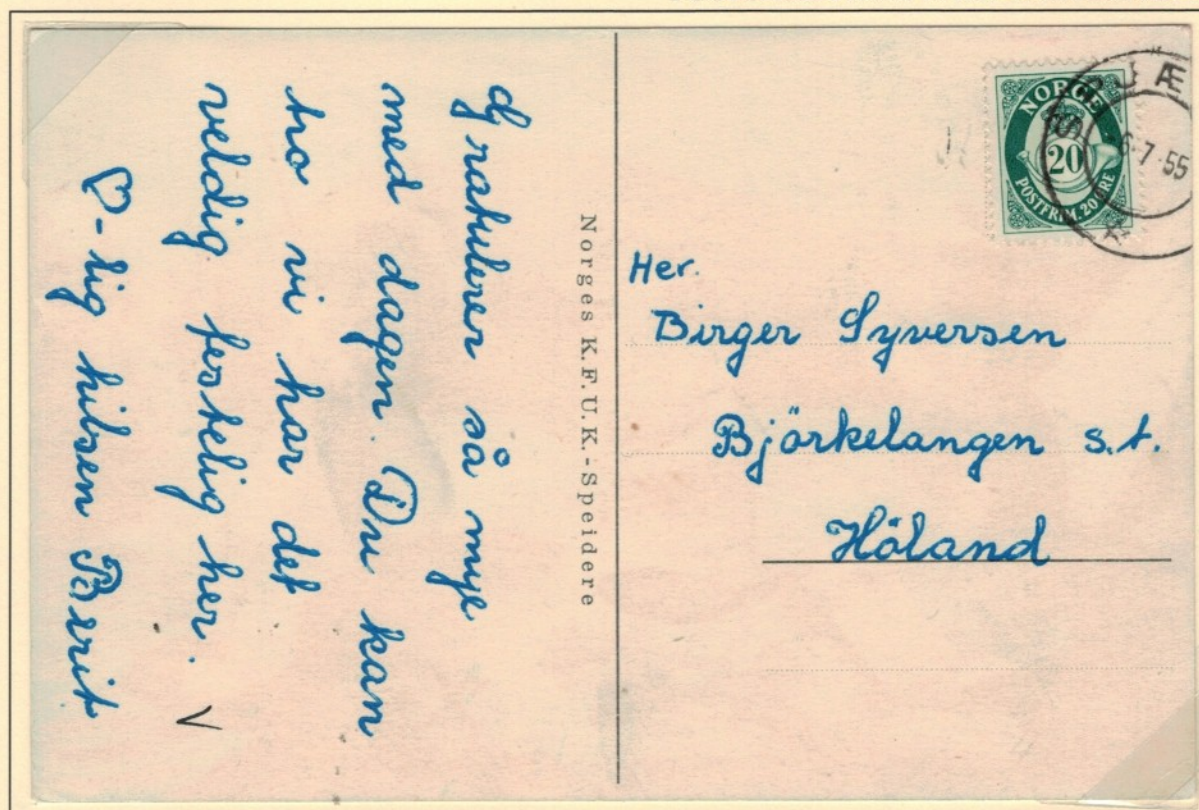 Gratulerer så mye
med dagen. Du kan
tro vi har det
veldig festelig her.
♡-lig hilsen Berit
Norges K.F.U.K.-Speidere
NORGE
20
POSTFRIM. 20 ØRE
6·7·55
Her.
Birger Syversen
Björkelangen s.t.
Höland